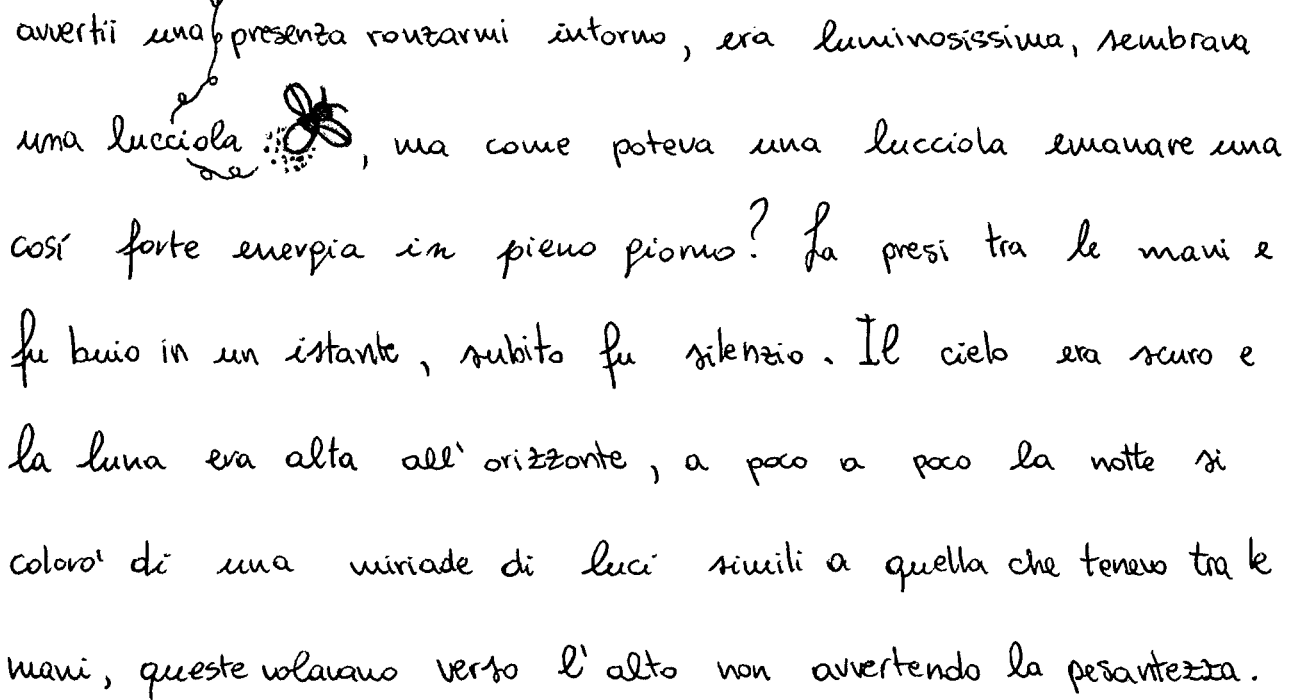 avvertii una presenza ronzarmi intorno, era luminosissima, sembrava
una lucciola , ma come poteva una lucciola emanare una
così forte energia in pieno giorno? La presi tra le mani e
fu buio in un istante, subito fu silenzio. Il cielo era scuro e
la luna era alta all' orizzonte, a poco a poco la notte si
colorò di una miriade di luci simili a quella che tenevo tra le
mani, queste volavano verso l' alto non avvertendo la pesantezza.